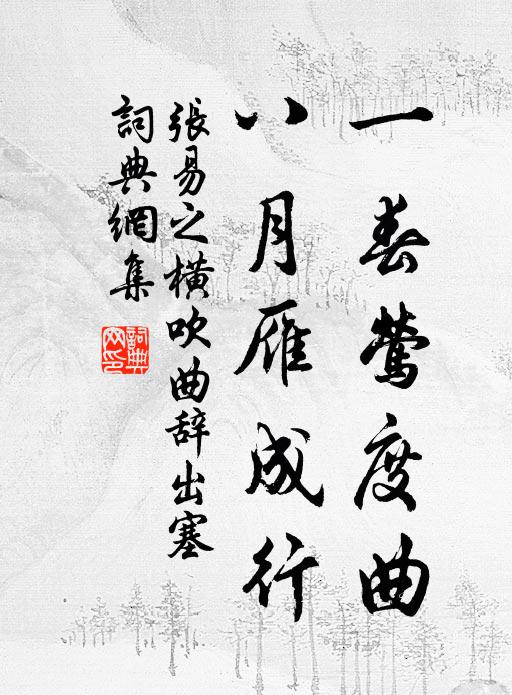 一春鶯度曲
八月雁成行
張易之橫吹曲辞出塞
詞典網集
詞典網印